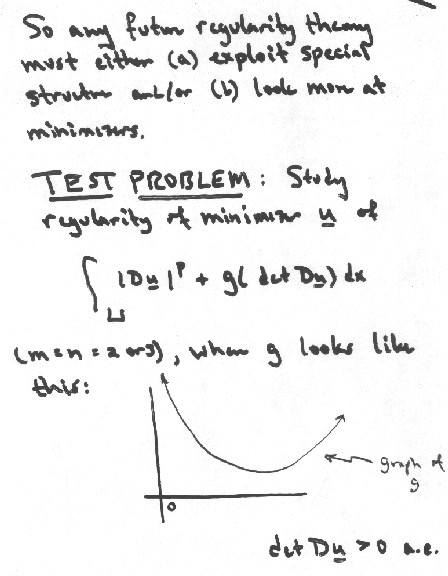 So any future regularity theory
must either (a) exploit special
structure and/or (b) look more at
minimizers.
TEST PROBLEM: Study
regularity of minimizers u of
∫_U |Du|^p + g(det Du) dx
(m=n=2 or 3), where g looks like
this:
graph of
g
0
det Du > 0 a.e.